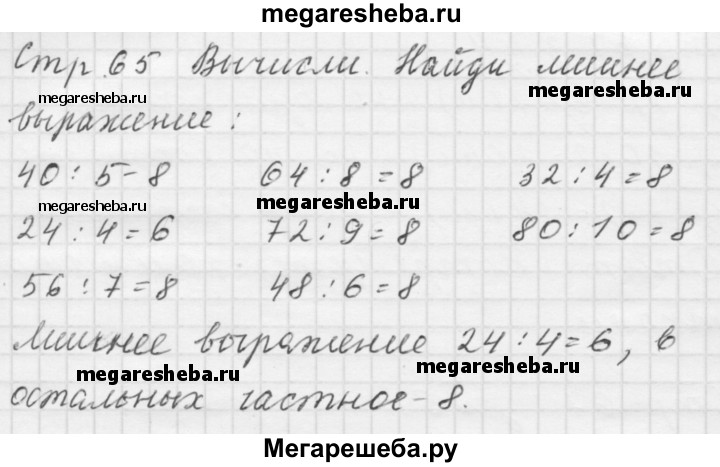 megaresheba.ru
Стр. 65 Вычисли. Найди лишнее
megaresheba.ru megaresheba.ru
выражение:
40 : 5 - 8 64 : 8 = 8 32 : 4 = 8
megaresheba.ru megaresheba.ru
24 : 4 = 6 72 : 9 = 8 80 : 10 = 8
56 : 7 = 8 48 : 6 = 8
Лишнее выражение 24 : 4 = 6, в
megaresheba.ru megaresheba.ru
остальных частное - 8.
Мегарешеба.ру